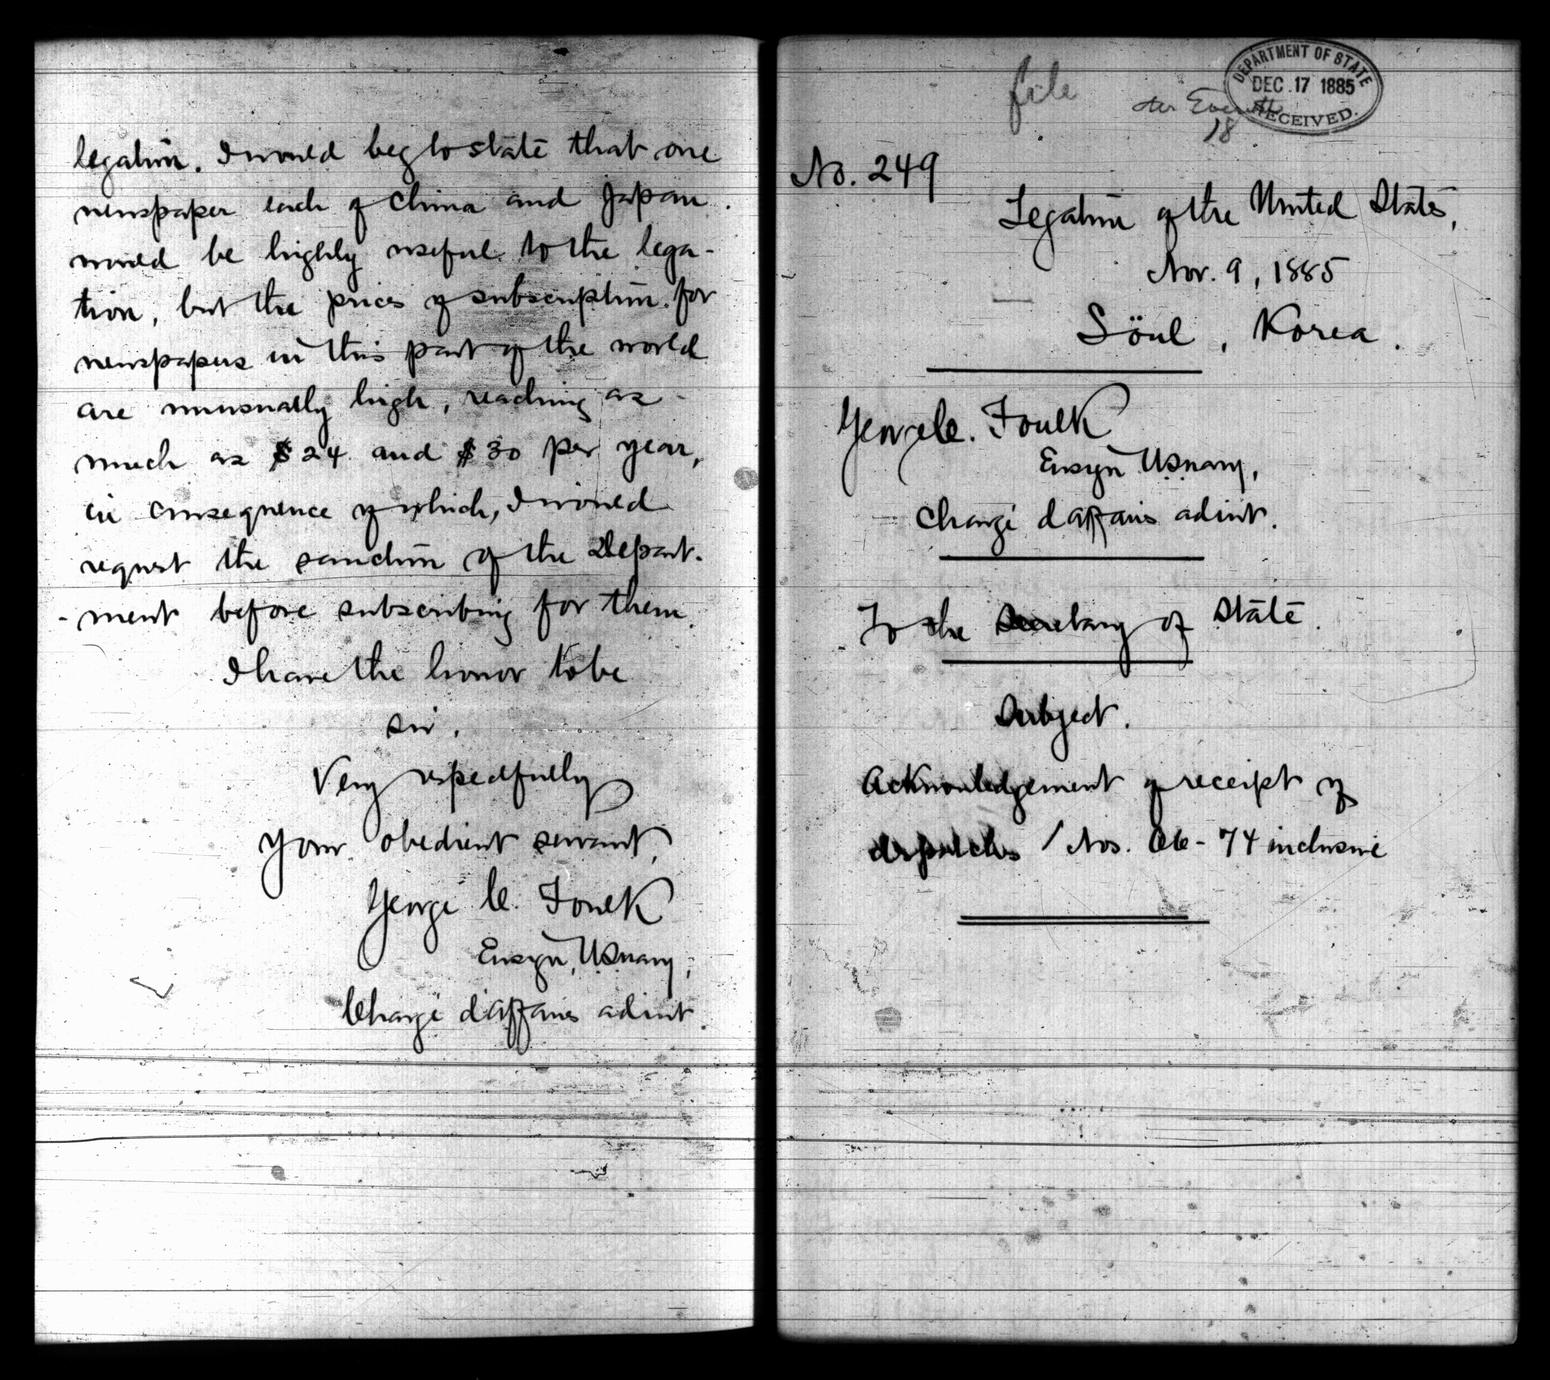 legation. I would beg to state that one
newspaper each of China and Japan
would be highly useful to the lega-
tion, but the prices of subscription for
newspapers in this part of the world
are unusually high, reaching as
much as $24 and $30 per year,
in consequence of which, I would
request the sanction of the Depart-
-ment before subscribing for them.
I have the honor to be
Sir,
Very respectfully
Your obedient servant,
George C. Foulk
Ensign, US navy,
Chargé d'affaires ad int.
file
DEPARTMENT OF STATE
DEC 17 1885
RECEIVED.
18
No. 249
Legation of the United States,
Nov. 9, 1885
Söul, Korea.
George C. Foulk
Ensign US navy,
Chargé d'affaires ad int.
To the Secretary of State.
Subject.
Acknowledgement of receipt of
dispatches / Nos. 66-74 inclusive